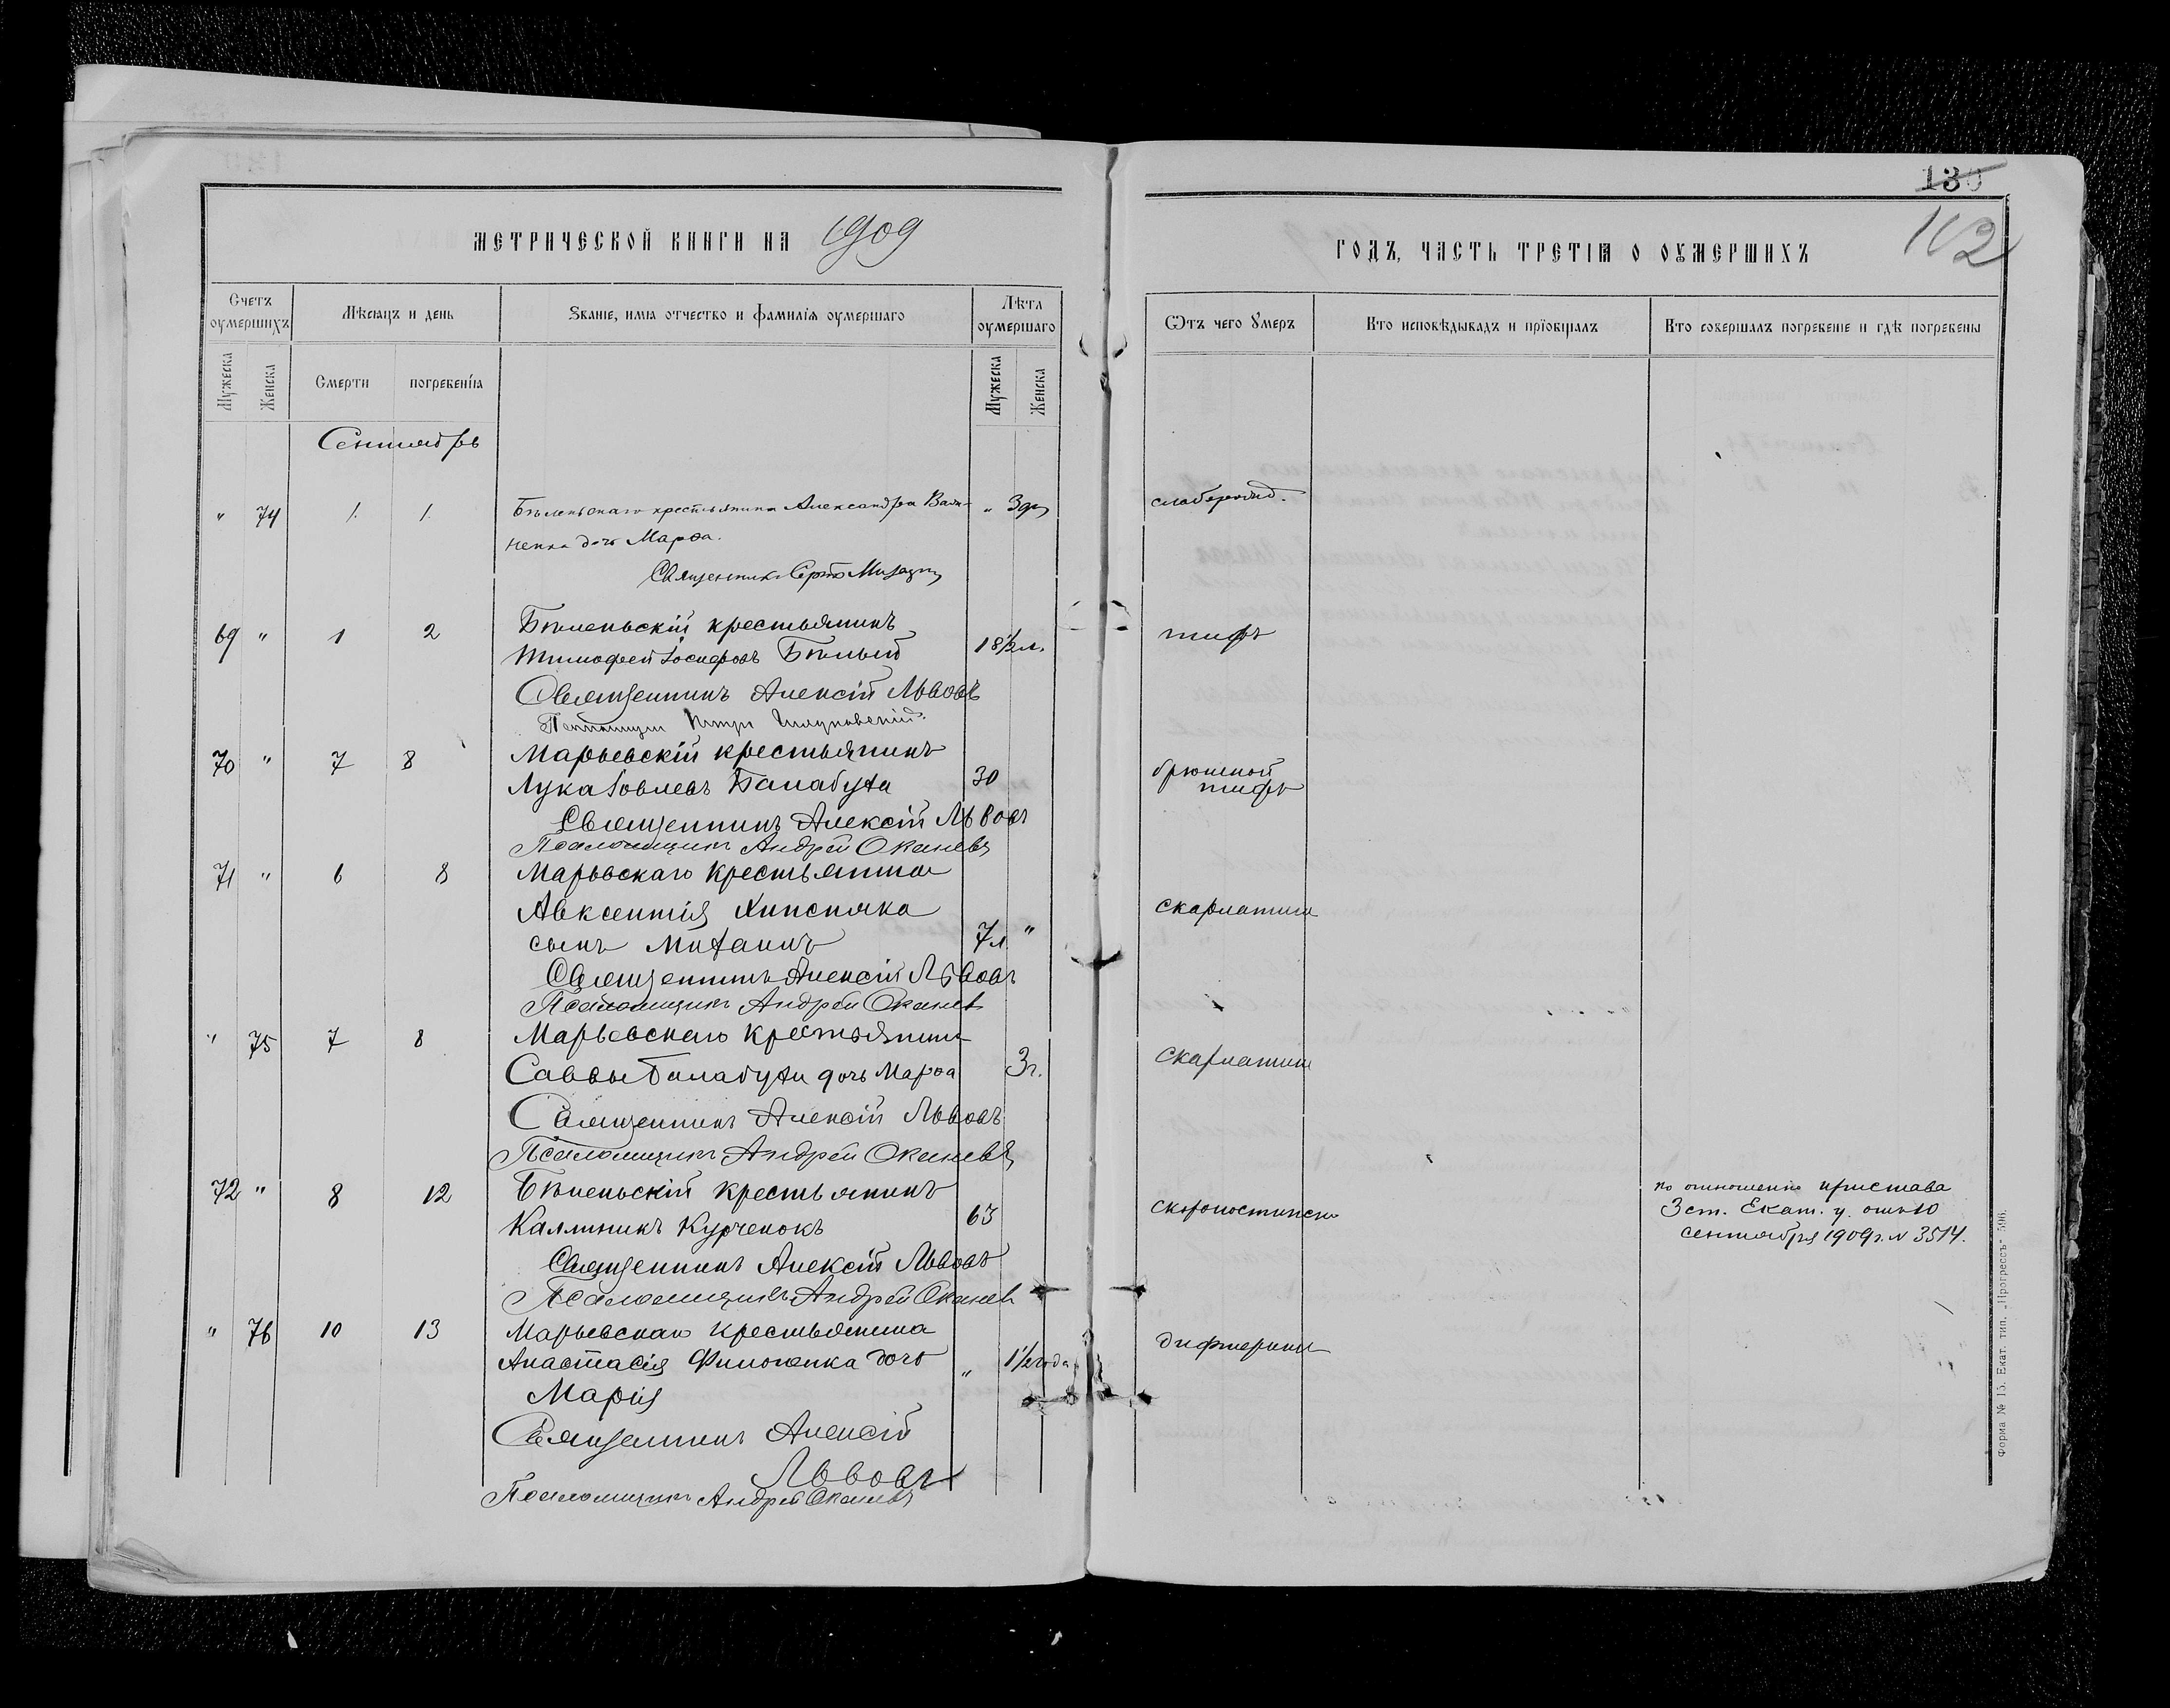 130
112
МЕТРИЧЕСКОЙ КНИГИ НА 1909
ГОДЪ, ЧАСТЬ ТРЕТІѦ О ОУМЕРШИХЪ
Счетъ оумершихъ
Мѣсѧцъ и день
Званіе, имѧ отчество и фамиліѧ оумершаго
Лѣта оумершаго
Ѿтъ чего Умеръ
Кто исповѣдывалъ и прїобщалъ
Кто совершалъ погребеніе и гдѣ погребены
Мужеска
Женска
Смерти
погребеніѧ
Мужеска
Женска
Сентябрь
" 74 1. 1. Бѣленьскаго крестьянина Александра
" 3 дн слаборожд.
дочь Марѳа.
Священникъ
69 " 1 2 Бѣленьскій крестьянинъ
Тимофей Іосифовъ Бѣлый 18½ л. тифъ
Священникъ Алексій Львовъ
70 " 7 8 Марьевскій крестьянинъ
Лука Іовлевъ Балабуха 30 брюшной
тифъ
Священникъ Алексій Львовъ
Псаломщикъ Андрей Оканевъ
71 " 6 8 Марьевскаго крестьянина
Авксентія
скарлатина
сынъ Михаилъ 7 л "
Священникъ Алексій Львовъ
Псаломщикъ Андрей Оканев
" 75 7 8 Марьевскаго крестьянина
Саввы Балабухи дочь Марѳа 3 г. скарлатина
Священникъ Алексій Львовъ
Псаломщикъ Андрей Оканевъ
72 " 8 12 Бѣленьскій крестьянинъ
Каллиникъ Курченокъ 63 скоропостижно
по отношенію пристава
3 ст. Екат. у. отъ 10
сентября 1909 г. № 3514.
Священникъ Алексій Львовъ
Псаломщикъ Андрей Оканев
" 76 10 13 Марьевскаго крестьянина
Анастасія Филоненка дочь " 1½ года дифтерита
Марія
Священникъ Алексій
Львовъ
Псаломщикъ Андрей Оканевъ
Форма № 15. Екат. тип. „Прогрессъ" 596.